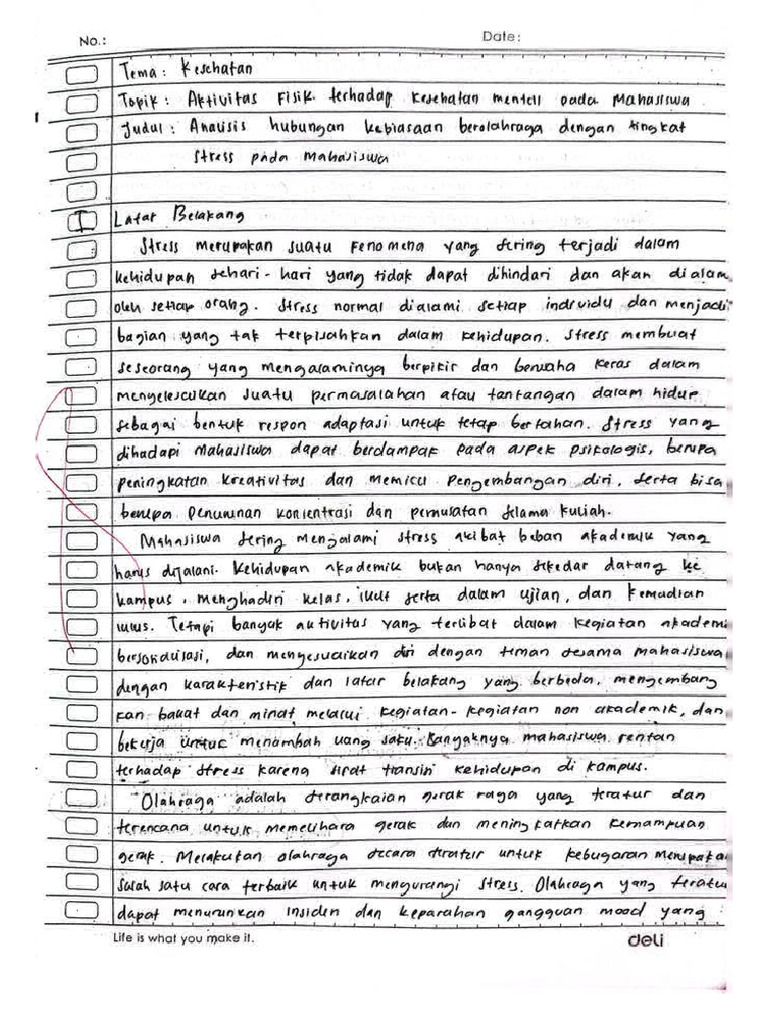 No.:
Date:
Tema: Kesehatan
Topik: Aktivitas Fisik terhadap Kesehatan mentall pada Mahasiswa
Judul: Analisis hubungan kebiasaan berolahraga dengan tingkat
Stress pada Mahasiswa
I Latar Belakang
Stress merupakan suatu Fenomena yang sering terjadi dalam
kehidupan sehari-hari yang tidak dapat dihindari dan akan dialam
oleh setiap orang. Stress normal dialami setiap individu dan menjadi
bagian yang tak terpisahkan dalam kehidupan. Stress membuat
seseorang yang mengalaminya berpikir dan berusaha keras dalam
menyelesaikan suatu permasalahan atau tantangan dalam hidup
sebagai bentuk respon adaptasi untuk tetap bertahan. Stress yang
dihadapi Mahasiswa dapat berdampak pada aspek psikologis, berupa
peningkatan kreativitas dan memicu pengembangan diri, serta bisa
berupa penurunan konsentrasi dan pemusatan selama kuliah.
Mahasiswa sering mengalami stress akibat beban akademik yang
harus dijalani. Kehidupan akademik bukan hanya sekedar datang ke
kampus, menghadiri kelas, ikut serta dalam ujian, dan kemudian
lulus. Tetapi banyak aktivitas yang terlibat dalam kegiatan akademi
bersosialisasi, dan menyesuaikan diri dengan teman sesama mahasiswa
dengan karakteristik dan latar belakang yang berbeda, mengembang
kan bakat dan minat melalui kegiatan-kegiatan non akademik, dan
bekerja untuk menambah uang saku. Banyaknya mahasiswa rentan
terhadap stress karena sifat transisi kehidupan di kampus.
Olahraga adalah serangkaian gerak raga yang teratur dan
terencana untuk memelihara gerak dan meningkatkan kemampuan
gerak. Melakukan olahraga secara teratur untuk kebugaran merupakan
salah satu cara terbaik untuk mengurangi stress. Olahraga yang teratu
dapat menurunkan insiden dan keparahan gangguan mood yang
Life is what you make it.
deli